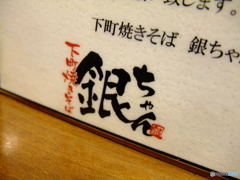 致します。
下町焼きそば 銀ちゃん
下町焼きそば
銀ちゃん